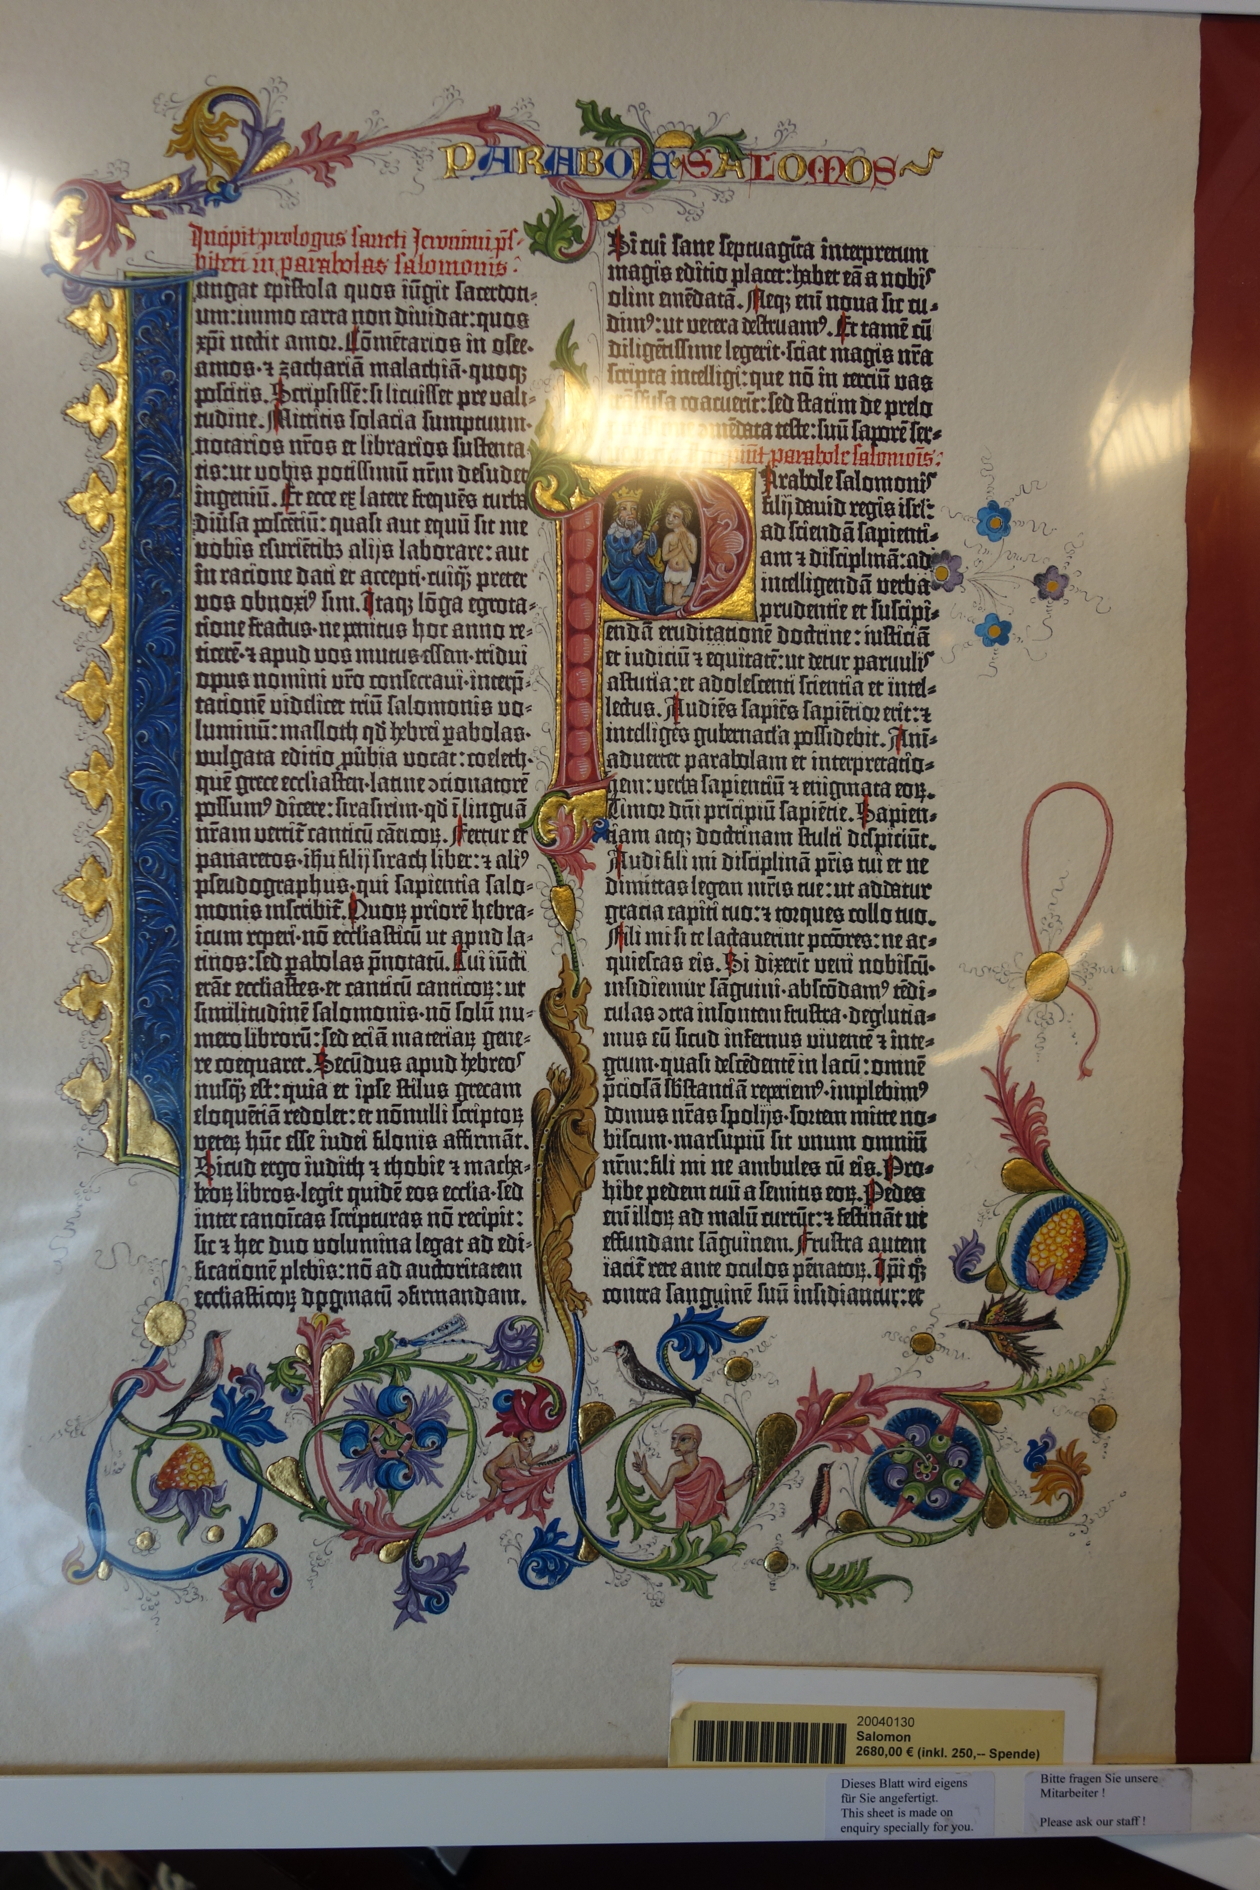 PARABOLE SALOMOS
Incipit prologus sancti Jeronimi pſ-
biteri in parabolas salomonis:
Iungat epistola quos iūgit sacerdoti-
um: immo carta non dividat: quos
xpi nectit amor. Cōmētarios in osee.
amos· ⁊ zachariā malachiā· quoqꝫ
poscitis. Scripsissē: si licuisset pre vali-
tudine. Mittitis solacia sumptuum·
notarios nr̄os et librarios sustenta-
tis: ut vobis potissimū nr̄m desudet
ingeniū. Et ecce ex latere frequēs turba
diūsa poscētiū: quasi aut equū sit me
vobis esuriētibꝫ alijs laborare: aut
in racione dati et accepti· cuiqꝫ̄ preter
vos obnoxiꝰ sim. Itaqꝫ lōga egrota-
tione fractus· ne penitus hoc anno re-
ticerē· ⁊ apud vos mutus essem· tridui
opus nomini vr̄o consecraui· interp̄-
tationē videlicet triū salomonis vo-
luminū: masloth qd̄ hebrei ꝑabolas·
vulgata editio ꝓūbia vocat: coeleth·
quē grece ecclīasten· latine ↄcionatorē
possumꝰ dicere: sirasirim· qd̄ ī linguā
nr̄am vertit̄ canticū cāticoꝝ. Fertur et
panaretos· ih̄u filij sirach liber: ⁊ aliꝰ
pseudographus· qui sapientia salo-
monis inscribit̄. Quoꝝ priorē hebra-
icum reperi· nō ecclīasticū ut apud la-
tinos: sed ꝑabolas p̄notatū. Cui iūcti
erāt ecclīastes· et canticū canticoꝝ: ut
similitudinē salomonis· nō solū nu-
mero librorū: sed eciā materiaꝝ gene-
re coequaret. Secūdus apud hebreoſ
nusqꝫ̄ est: quia et ipse stilus grecam
eloquētiā redolet: et nōnulli scriptoꝝ
veteꝝ hūc esse iudei filonis affirmāt.
Sicud ergo iudith ⁊ thobie ⁊ macha-
beoꝝ libros· legit quidē eos ecclīa· sed
inter canoīcas scripturas nō recipit:
sic ⁊ hec duo volumina legat ad edi-
ficationē plebis: nō ad auctoritatem
ecclīasticoꝝ dogmatū ↄfirmandam.
Si cui sane septuagīta interpretum
magis editio placet: habet eā a nobiſ
olim emēdatā. Neqꝫ enī noua sic cu-
dimꝰ: ut vetera destruamꝰ. Et tamē cū
diligētissime legerit· sciat magis nr̄a
scripta intelligi: que nō in terciū vas
trāsfusa coacuerīt: sed statim de prelo
emēdata teste: suū saporē ser-
parabole salomoīs:
Parabole salomoniſ
filij dauid regis isrl̄:
ad sciendā sapienti-
am ⁊ disciplinā: ad
intelligendā verba
prudentie et suscipi-
endā eruditationē doctrine: iusticiā
et iudiciū ⁊ equitatē: ut detur paruuliſ
astutia: et adolescenti scientia et intel-
lectus. Audiēs sapiēs sapiētior erit: ⁊
intelligēs gubernacl̄a possidebit. Ani-
aduertet parabolam et interpretatio-
nem: verba sapientiū ⁊ enigmata eoꝝ.
Timor dn̄i pricipiū sapiētie. Sapien-
tiam atqꝫ doctrinam stulti despiciūt.
Audi fili mi disciplinā pr̄is tui et ne
dimittas legem mr̄is tue: ut addatur
gracia capiti tuo: ⁊ torques collo tuo.
Fili mi si te lactauerint pctōres: ne ac-
quiescas eis. Si dixerīt veni nobiscū·
insidiemur sāguini· abscōdamꝰ tēdi-
culas ↄtra insontem frustra· deglutia-
mus eū sicud infernus viuentē ⁊ inte-
grum· quasi descēdentē in lacū: omnē
p̄ciosā sb̄stantiā reperiemꝰ· implebimꝰ
domus nr̄as spolijs· sortem mitte no-
biscum· marsupiū sit unum omniū
nr̄m: fili mi ne ambules cū eis. Pro-
hibe pedem tuū a semitis eoꝝ. Pedes
enī illoꝝ ad malū currūt: ⁊ festināt ut
effundant sāguinem. Frustra autem
iacit̄ rete ante oculos pēnatoꝝ. Ipi qꝫ
contra sanguinē suū insidiantur: et
20040130
Salomon
2680,00 € (inkl. 250,-- Spende)
Dieses Blatt wird eigens
für Sie angefertigt.
This sheet is made on
enquiry specially for you.
Bitte fragen Sie unsere
Mitarbeiter !
Please ask our staff !